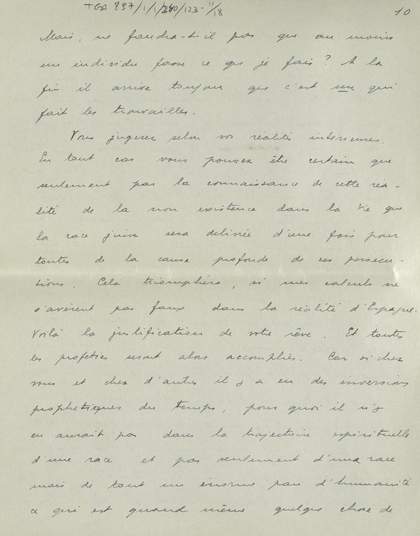 TGA 887/1/1/240/123-11/18
10
Mais, ne faudra-t-il pas que au moins
un individu fasse ce que je fais? A la
fin il arrive toujours que c'est un qui
fait les trouvailles.
Vous jugerez selon vos réalités intérieures.
En tout cas vous pouvez être certain que
seulement par la connaissance de cette réa-
lité de la non existence dans la vie que
la race juive sera delivrée d'une fois pour
toutes de la cause profonde de ses persecu-
tions. Cela triomphera, si mes calculs ne
s'avèrent pas faux dans la réalité d'Espagne.
Voilà la justification de votre rêve. Et toutes
les profeties seront alors accomplies. Car si chez
vous et chez d'autres il y a eu des inversions
prophetiques du temps, pourquoi il n'y
en aurait pas dans la trajectoire espirituelle
d'une race et pas seulement d'une race
mais de tout un énorme pan d'humanité
ce qui est quand même quelque chose de